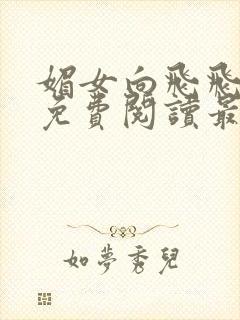 媚女向飛飛
免費閱讀最
如夢秀兒